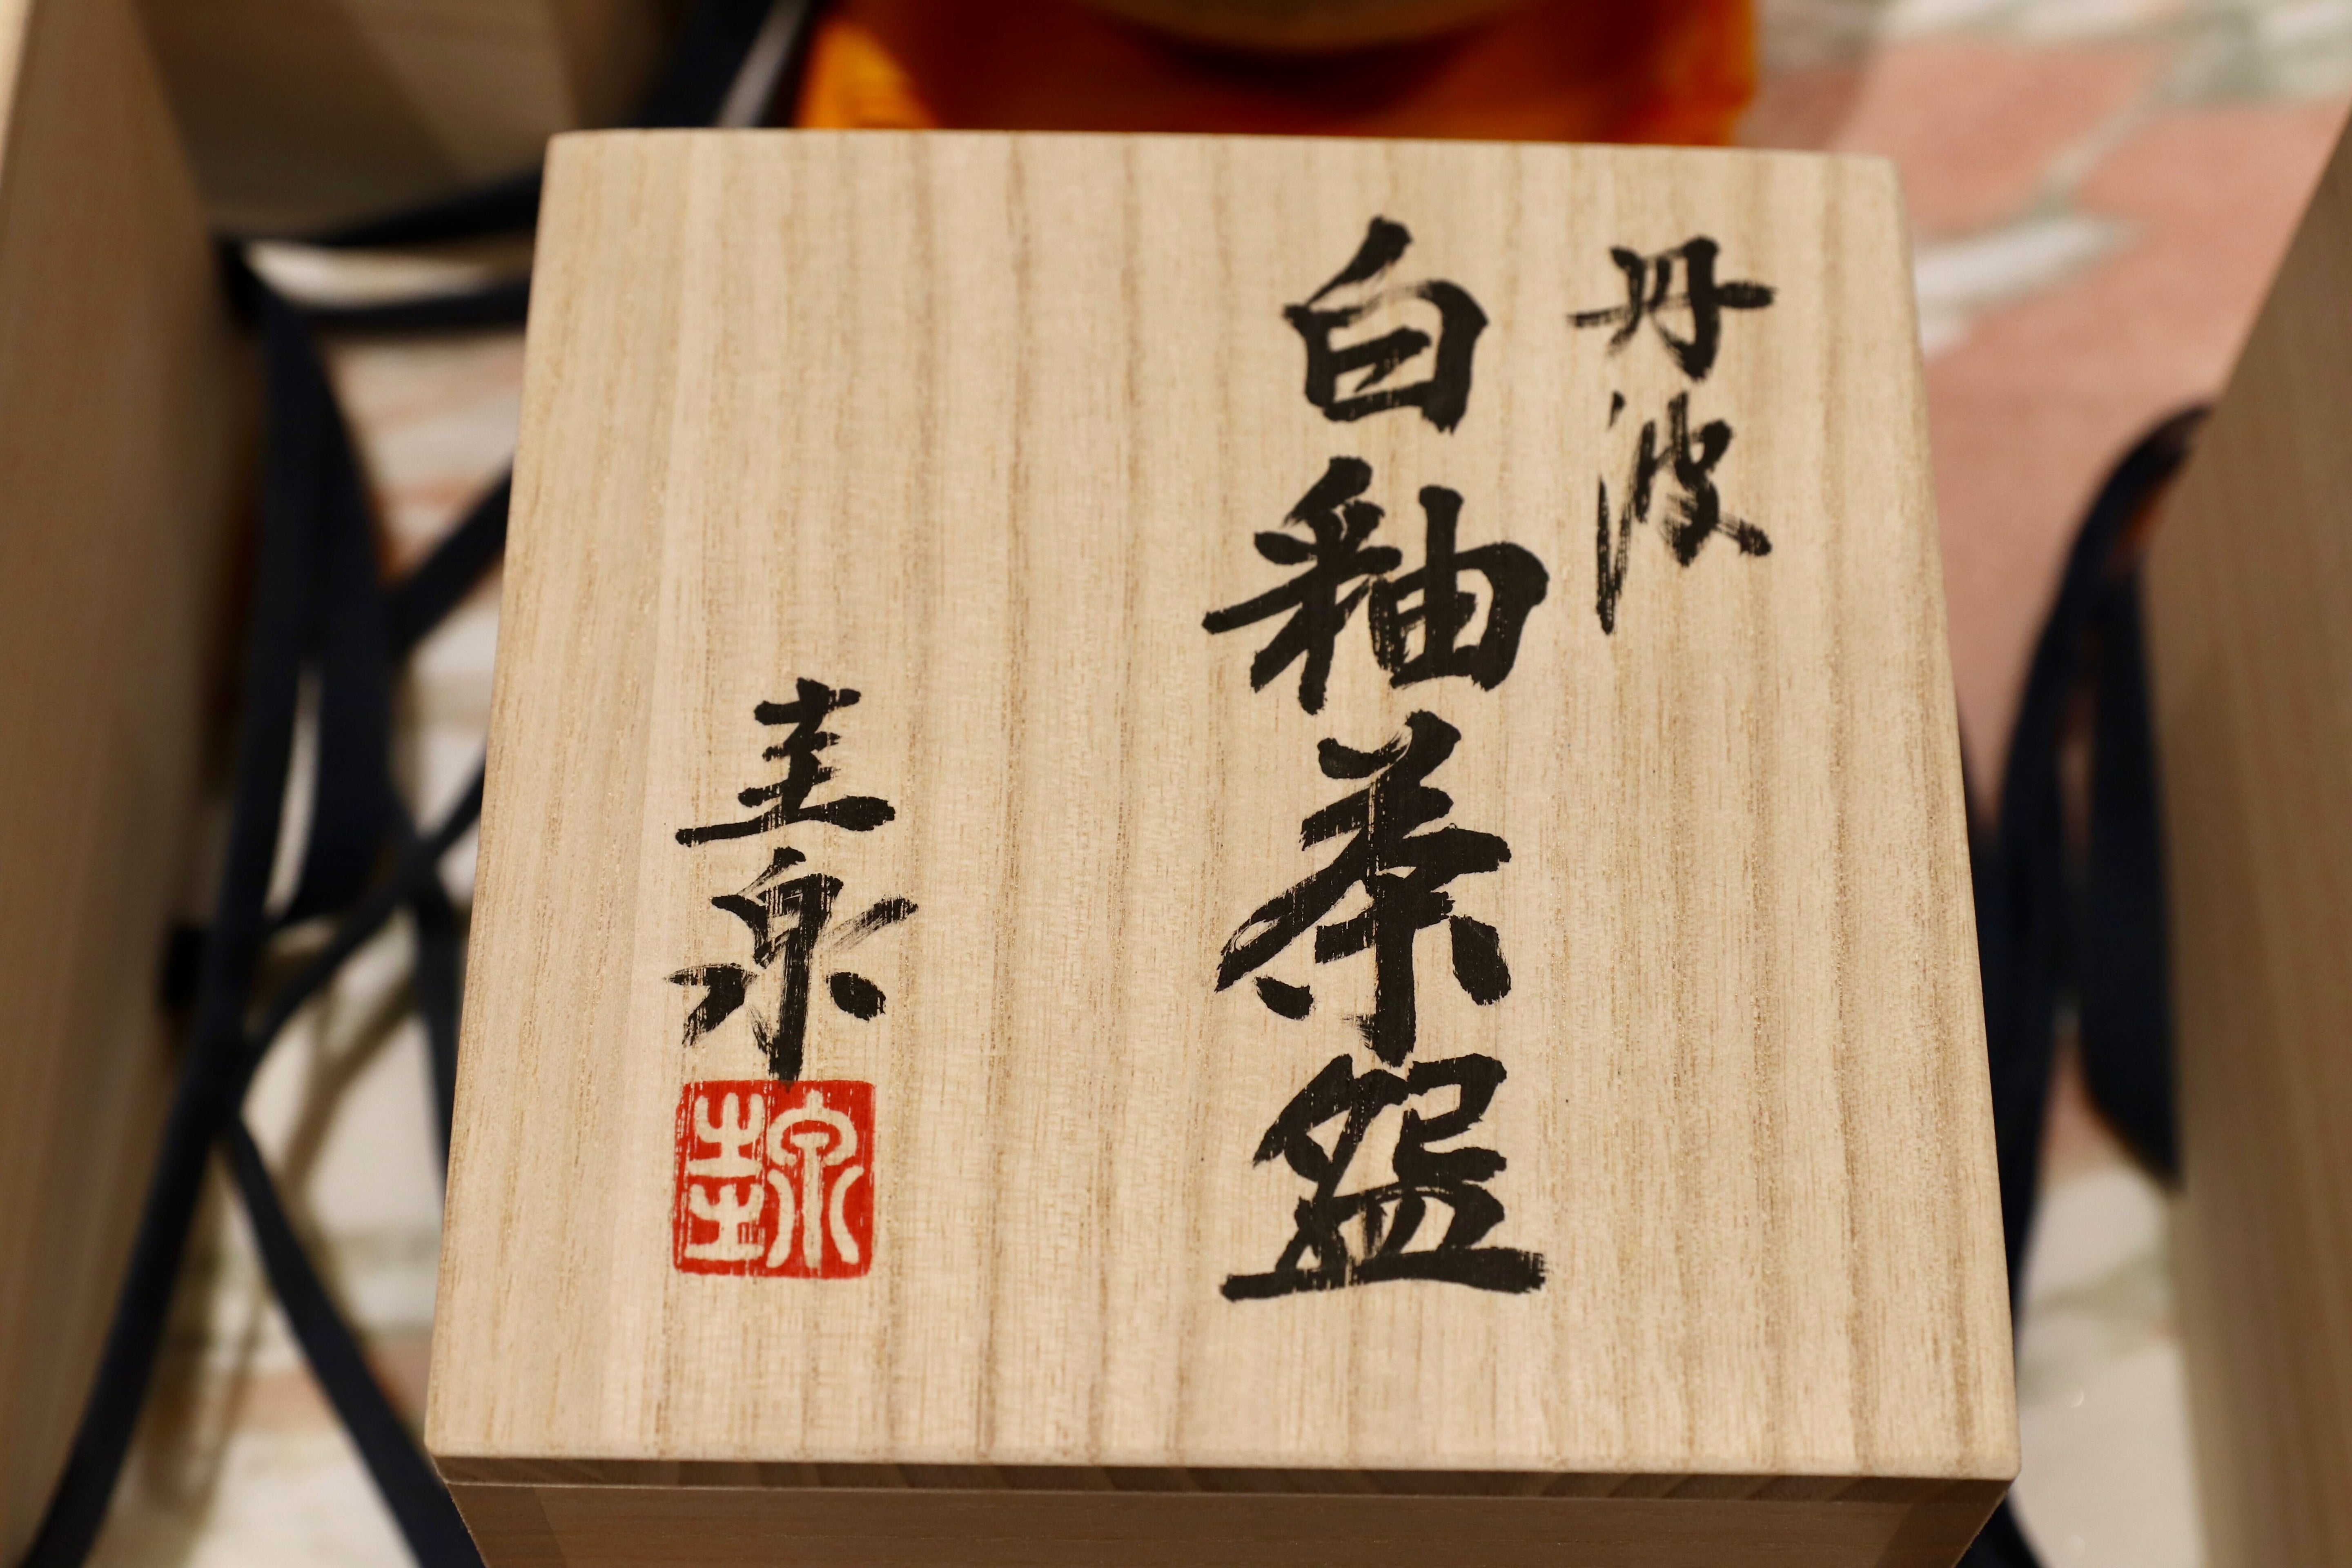 丹波
白釉茶盌
圭泉
圭泉